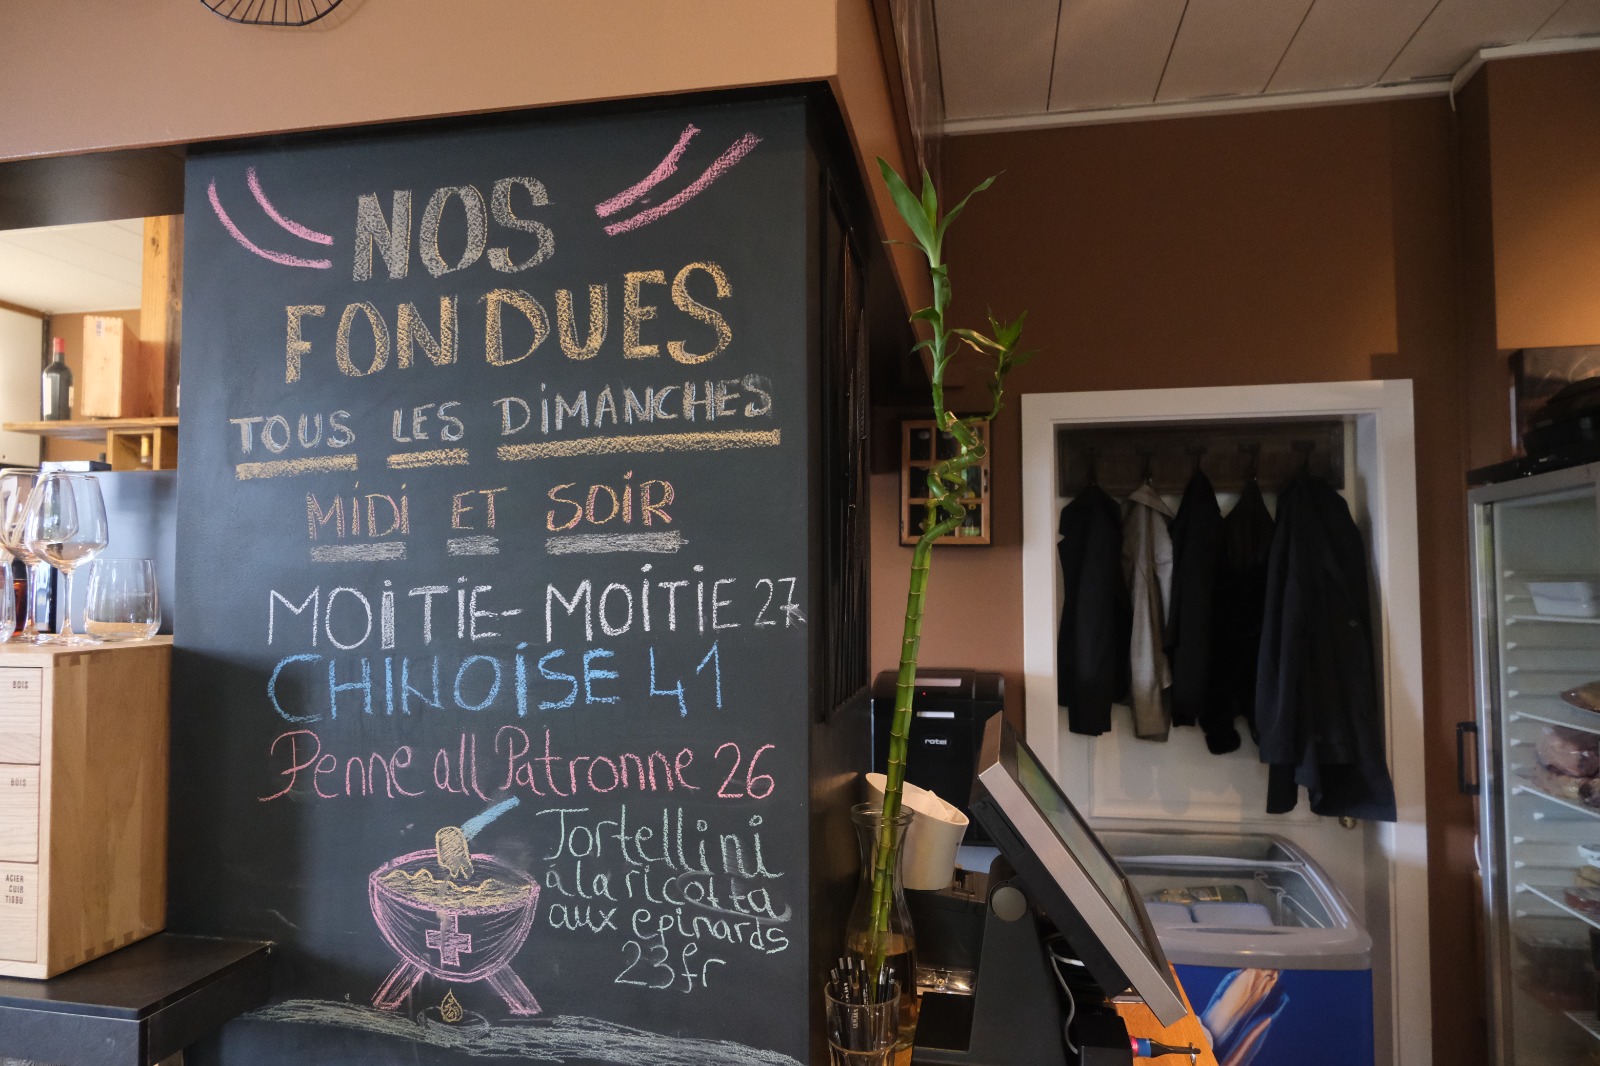 NOS
FONDUES
TOUS LES DIMANCHES
MIDI ET SOIR
MOITIE-MOITIE 27
CHINOISE 41
Penne all Patronne 26
Tortellini
a la ricotta
aux epinards
23fr
BOIS
BOIS
ACIER
CUIR
TISSU
rotel